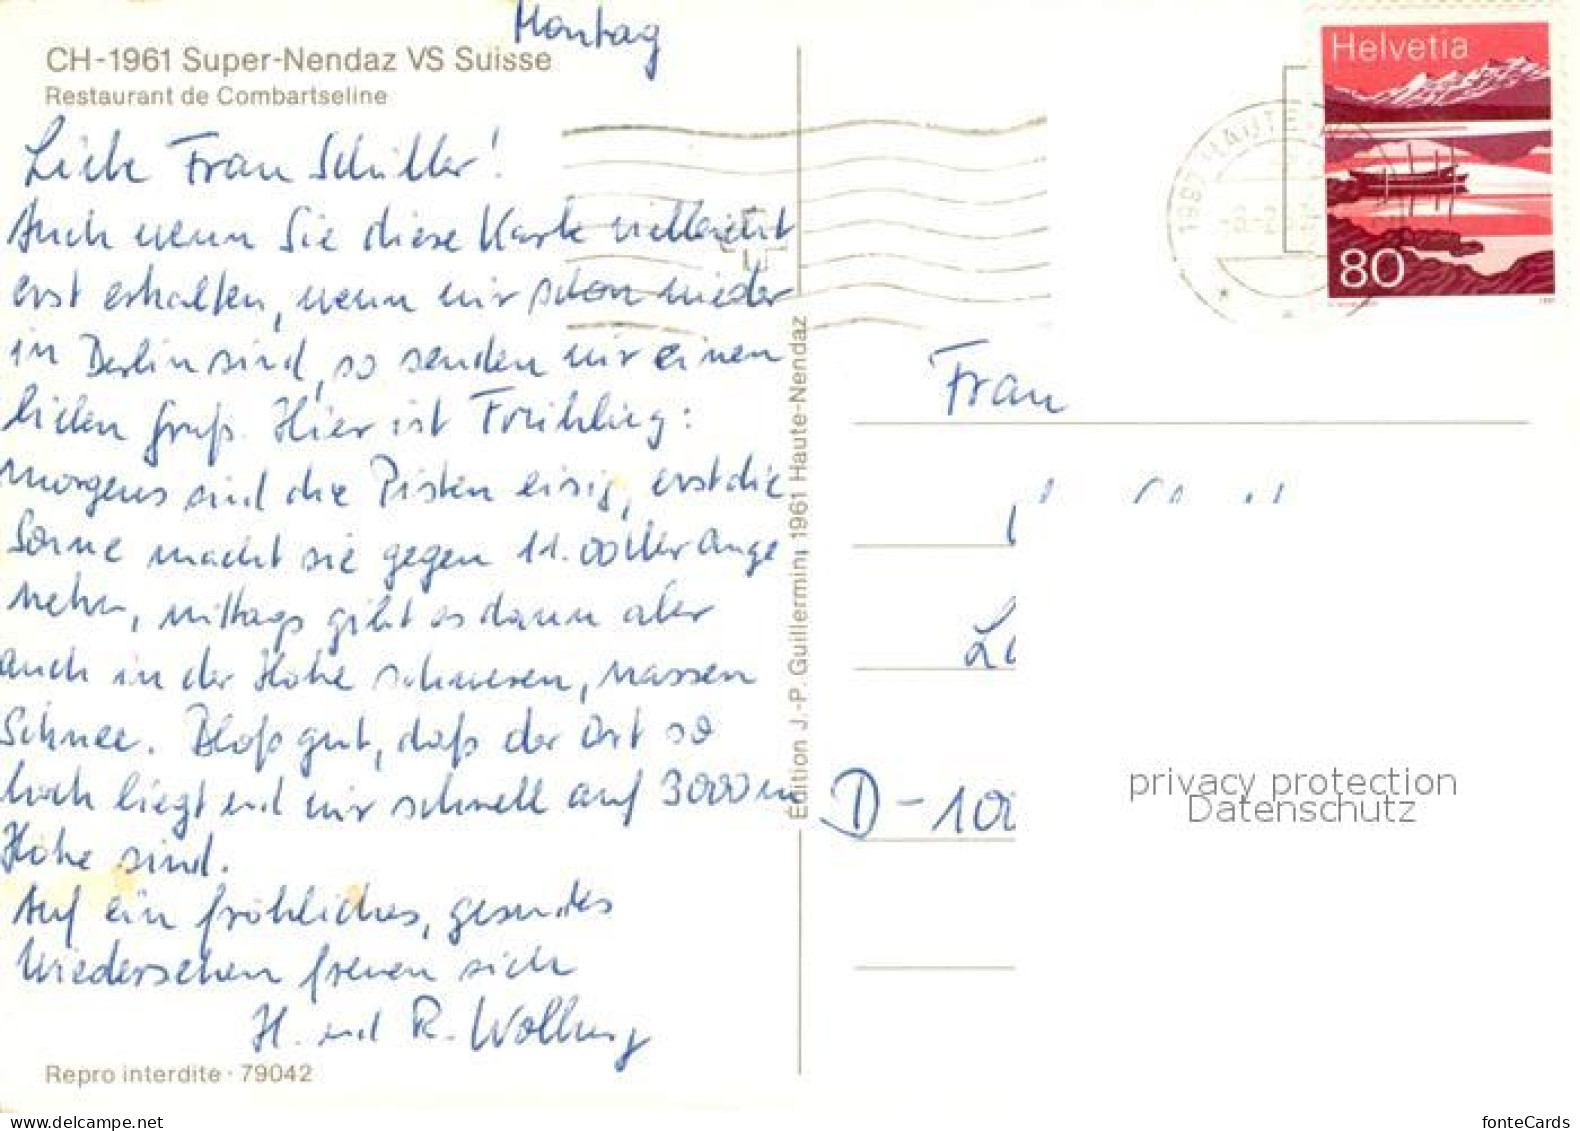 Montag
CH-1961 Super-Nendaz VS Suisse
Restaurant de Combartseline
Liebe Frau Schüller!
Auch wenn Sie diese Karte vielleicht
erst erhalten, wenn wir schon wieder
in Berlin sind, so senden wir einen
lieben Gruß. Hier ist Frühling:
morgens sind die Pisten eisig, erst die
Sonne macht sie gegen 11.00 Uhr ange
nehm, mittags gibt es dann aber
auch in der Höhe schweren, nassen
Schnee. Bloß gut, daß der Ort so
hoch liegt und wir schnell auf 3000 m
Höhe sind.
Auf ein fröhliches, gesundes
Wiedersehen freuen sich
H. und R.
Repro interdite · 79042
Edition J.-P. Guillermin, 1961 Haute-Nendaz
Helvetia
80
1997 HAUTE-N
Frau
D-10
privacy protection
Datenschutz
fonteCards